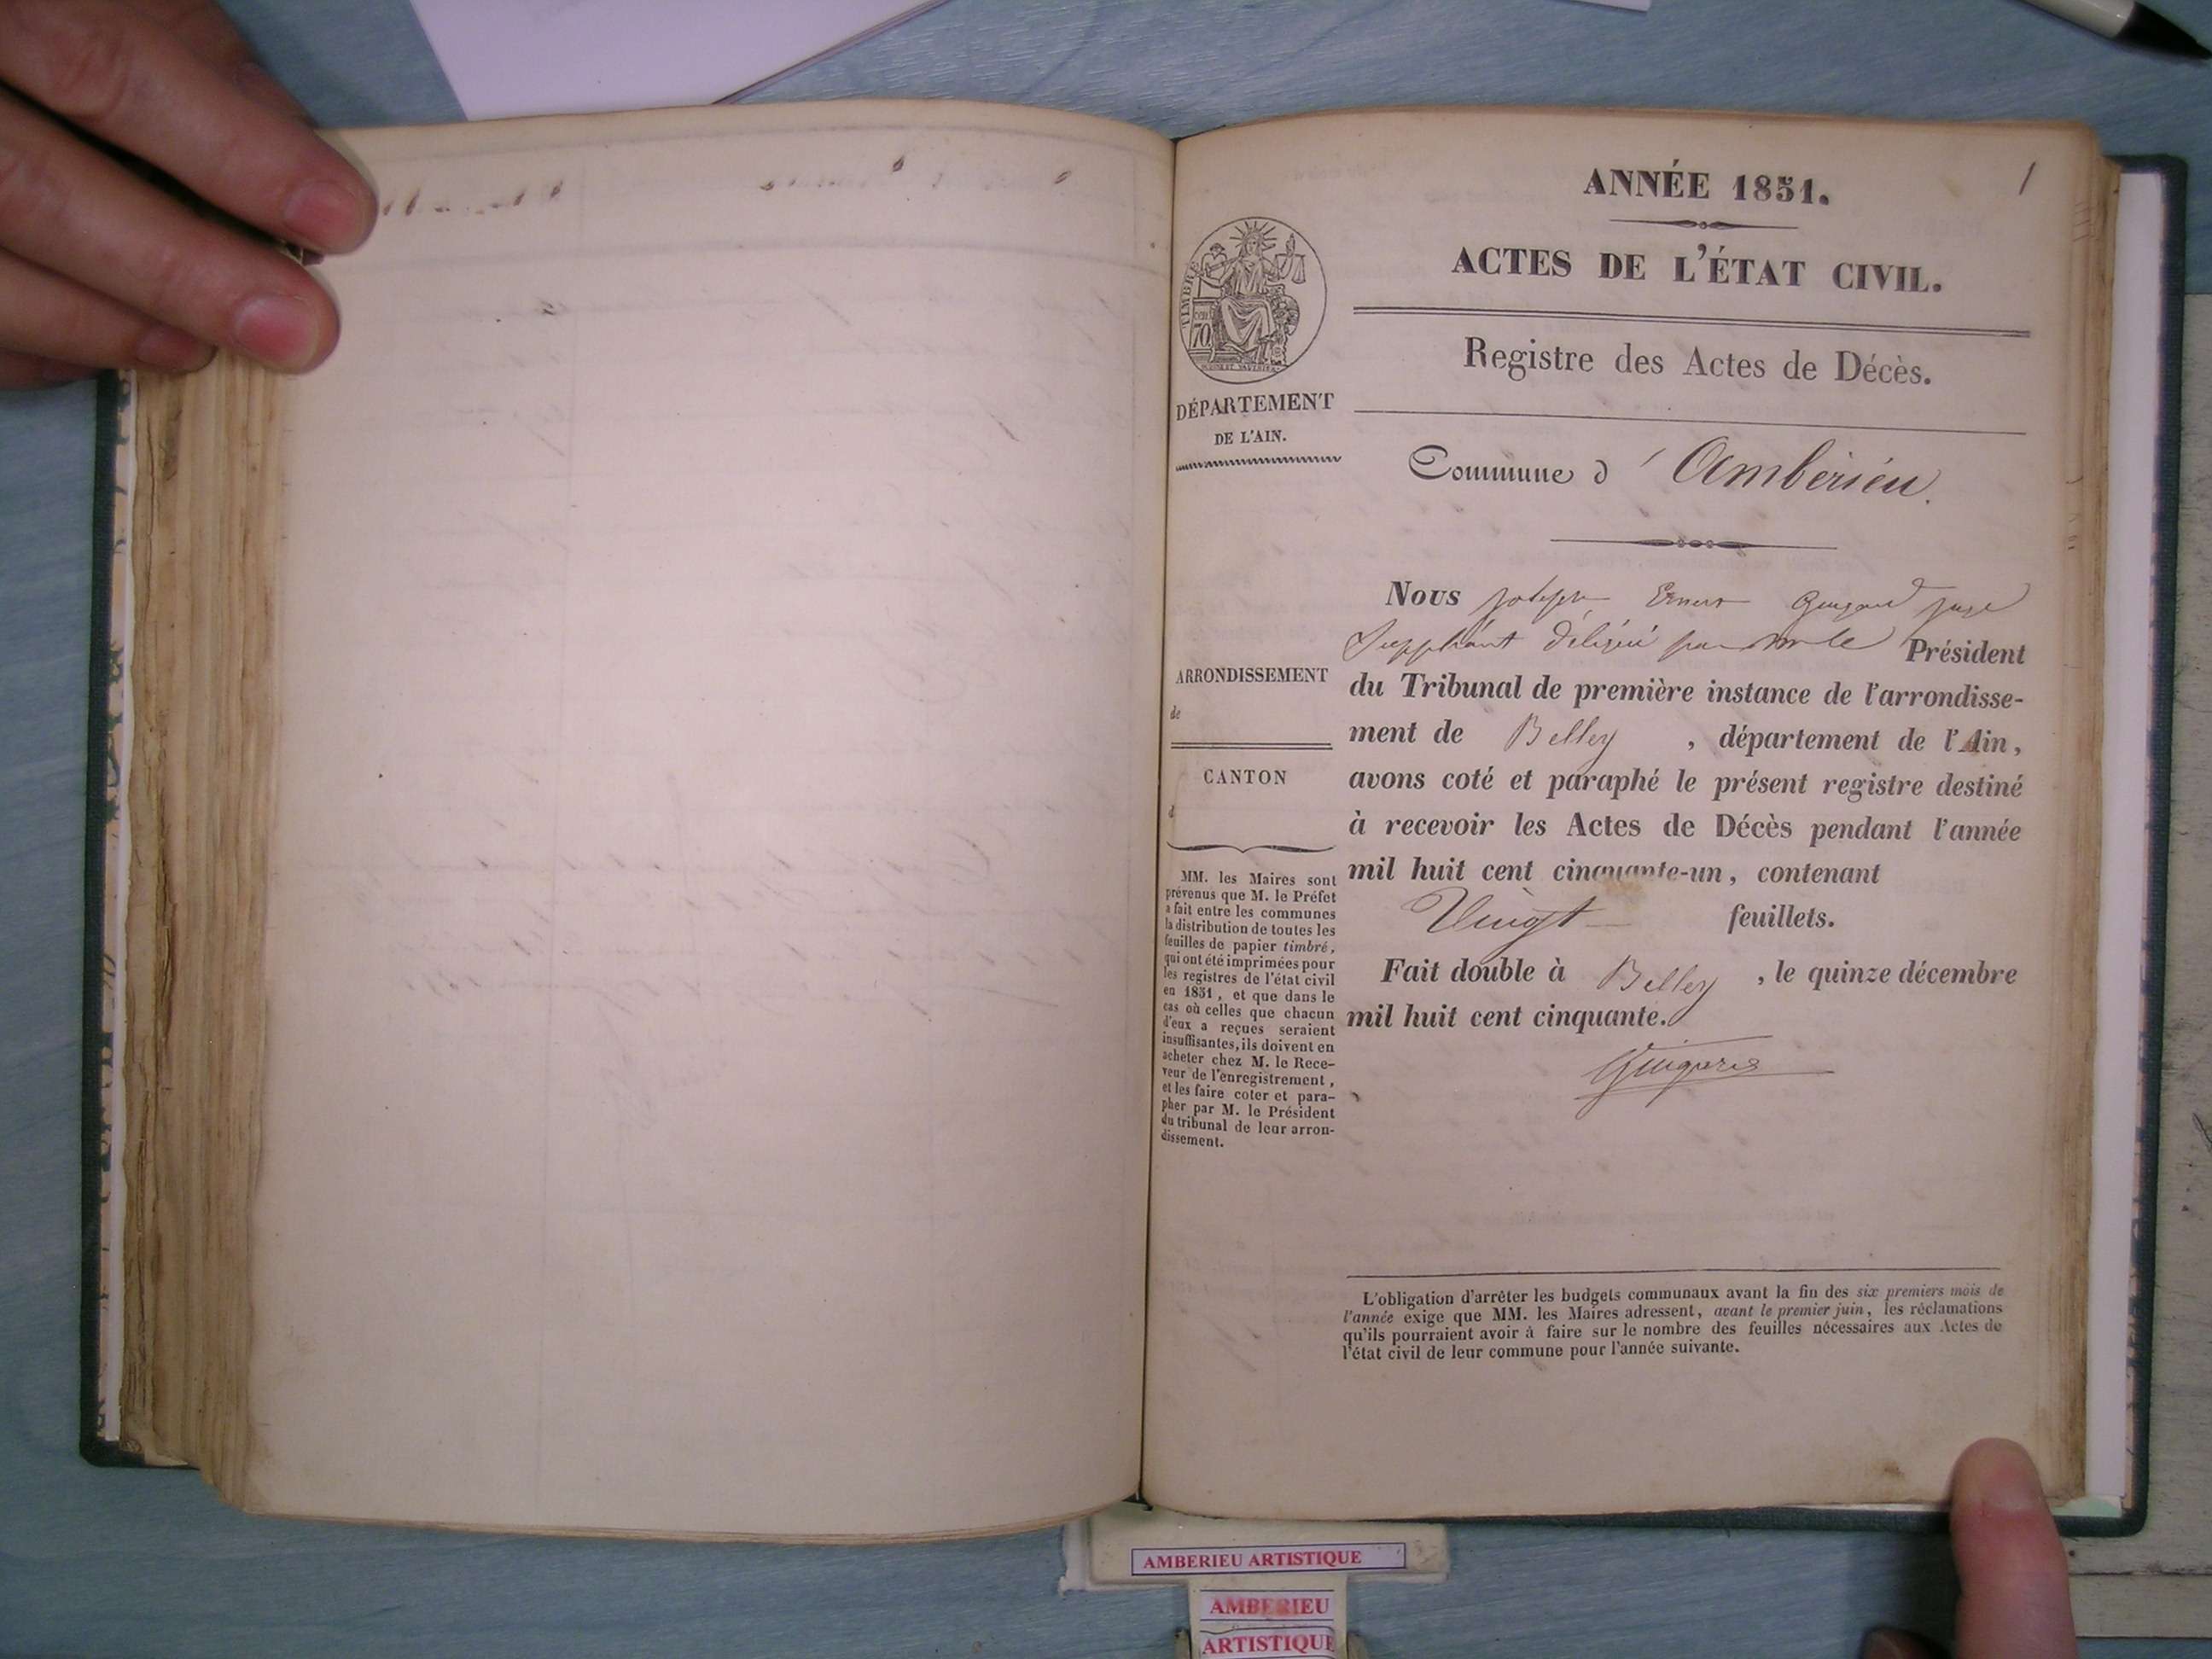 1
ANNÉE 1851.
ACTES DE L'ÉTAT CIVIL.
Registre des Actes de Décès.
TIMBRE
70
DÉPARTEMENT
DE L'AIN.
Commune d'Ambérieu.
ARRONDISSEMENT
de
CANTON
d
MM. les Maires sont
prévenus que M. le Préfet
a fait entre les communes
la distribution de toutes les
feuilles de papier timbré,
qui ont été imprimées pour
les registres de l'état civil
en 1851, et que dans le
cas où celles que chacun
d'eux a reçues seraient
insuffisantes, ils doivent en
acheter chez M. le Rece-
veur de l'enregistrement,
et les faire coter et para-
pher par M. le Président
du tribunal de leur arron-
dissement.
Nous Joseph Ernest juge
Suppléant délégué par Mr le Président
du Tribunal de première instance de l'arrondisse-
ment de Belley, département de l'Ain,
avons coté et paraphé le présent registre destiné
à recevoir les Actes de Décès pendant l'année
mil huit cent cinquante-un, contenant
Vingt feuillets.
Fait double à Belley, le quinze décembre
mil huit cent cinquante.
L'obligation d'arrêter les budgets communaux avant la fin des six premiers mois de
l'année exige que MM. les Maires adressent, avant le premier juin, les réclamations
qu'ils pourraient avoir à faire sur le nombre des feuilles nécessaires aux Actes de
l'état civil de leur commune pour l'année suivante.
AMBERIEU ARTISTIQUE
AMBERIEU
ARTISTIQUE